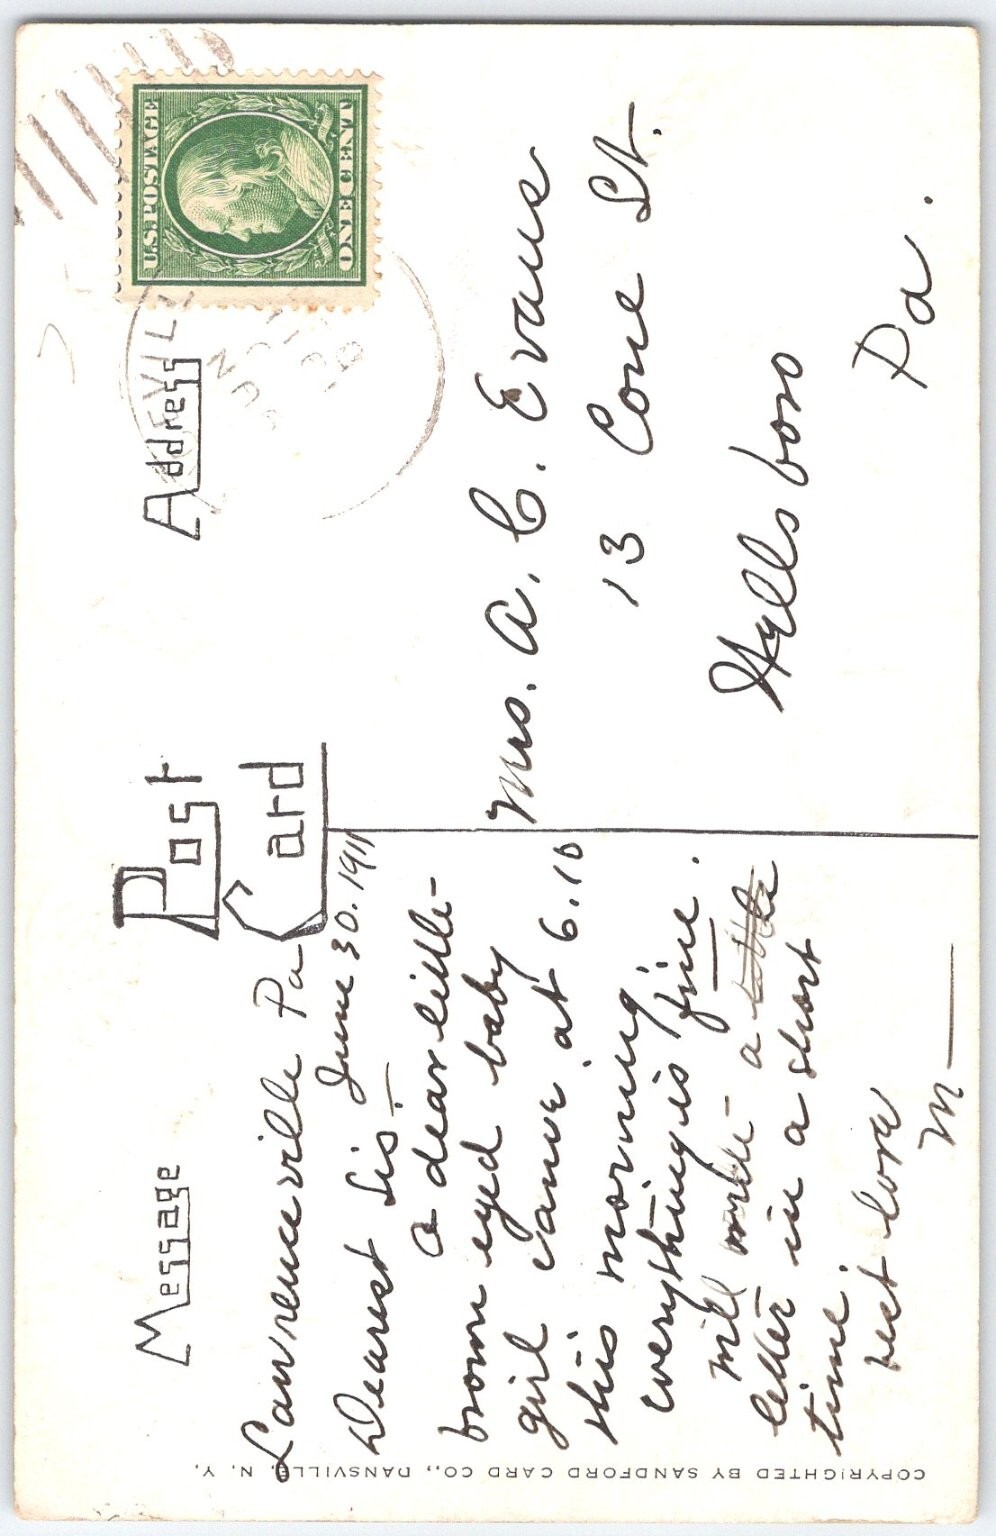 Post
Card
Message
Address
U.S. POSTAGE
ONE CENT
Lawrenceville Pa
June 30. 1911
Dearest Sis:—
a dear little
brown eyed baby
girl came at 6.10
this morning,
everything is fine.
Will write a
letter in a short
time.
best love
M—
Mrs. A. C. Evans
13 Cone St.
Wellsboro
Pa.
COPYRIGHTED BY SANDFORD CARD CO., DANSVILLE, N. Y.